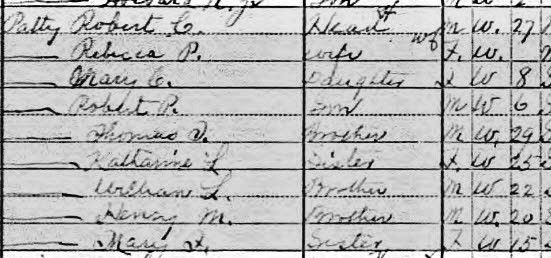 Patty Robert C. Head M W. 27
Rebecca P. wife F. W.
Mary C. Daughter F W 8
Robert P. Son M W 6
Thomas Brother M W. 29
Katharine L Sister F. W 25
William L. Brother M W 22
Henry M. Brother M W. 20
Mary F. Sister F W 15